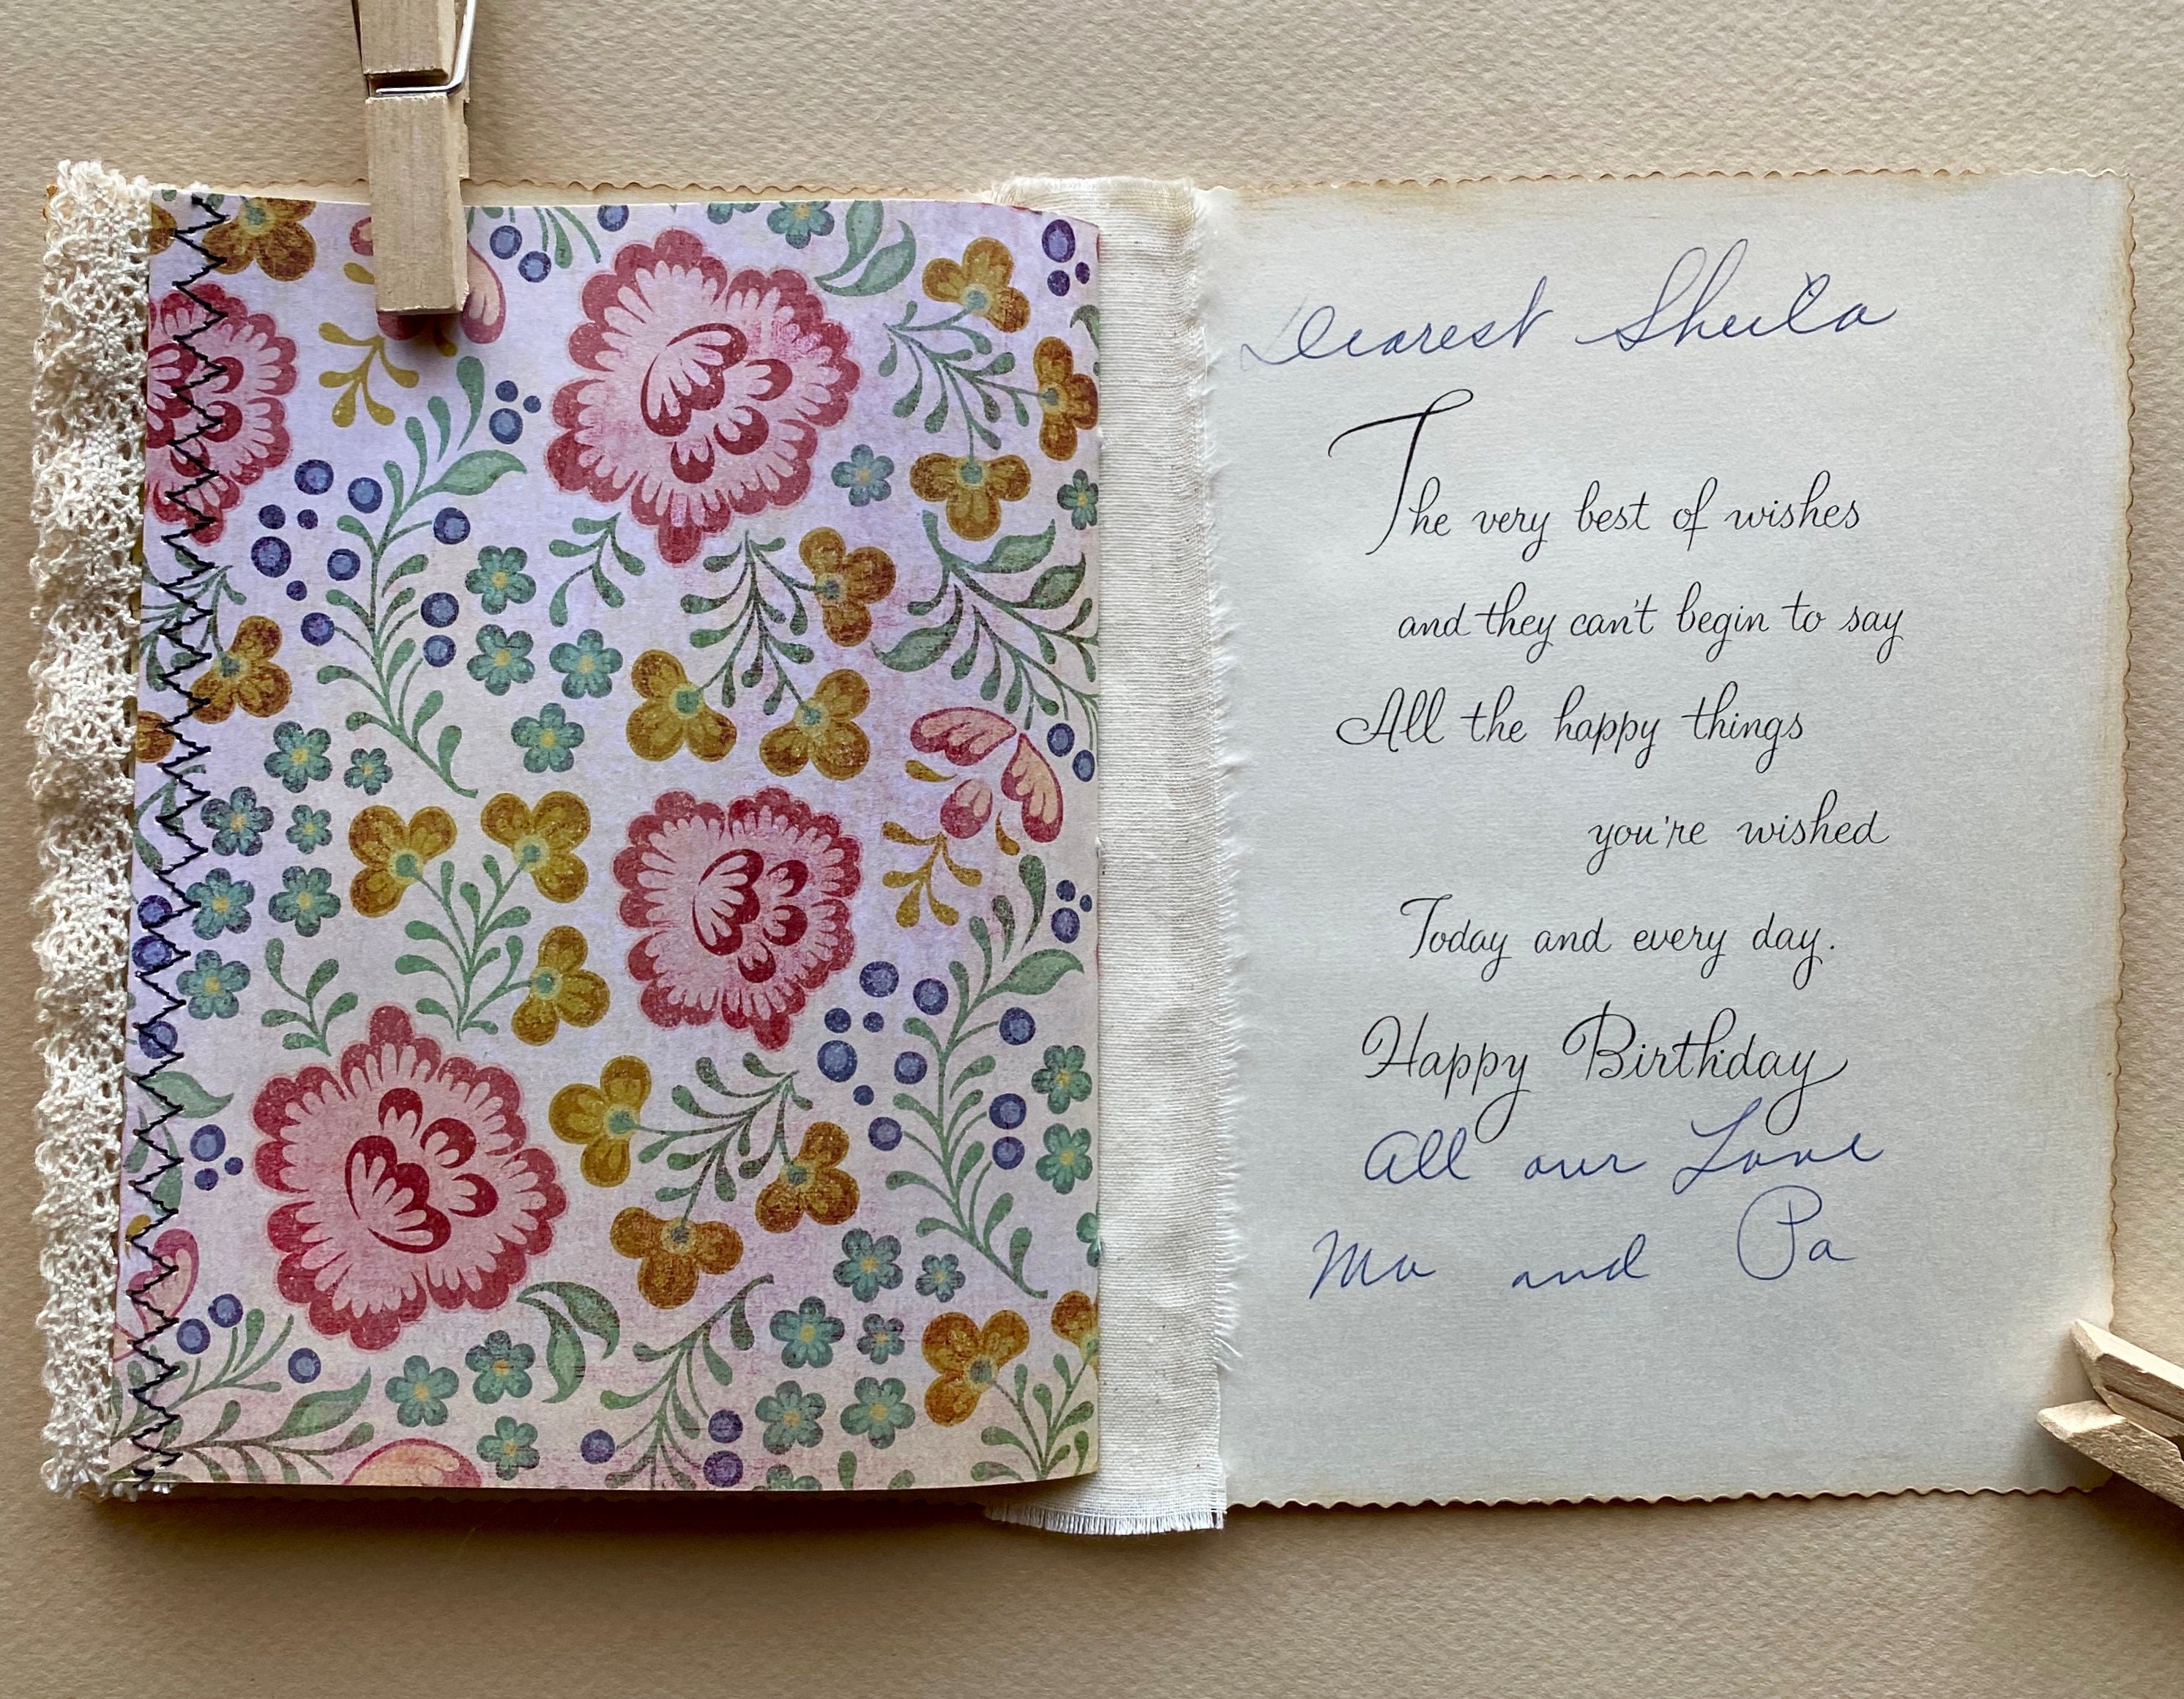 Dearest Sheila
The very best of wishes
and they can't begin to say
All the happy things
you're wished
Today and every day.
Happy Birthday
All our Love
Ma and Pa